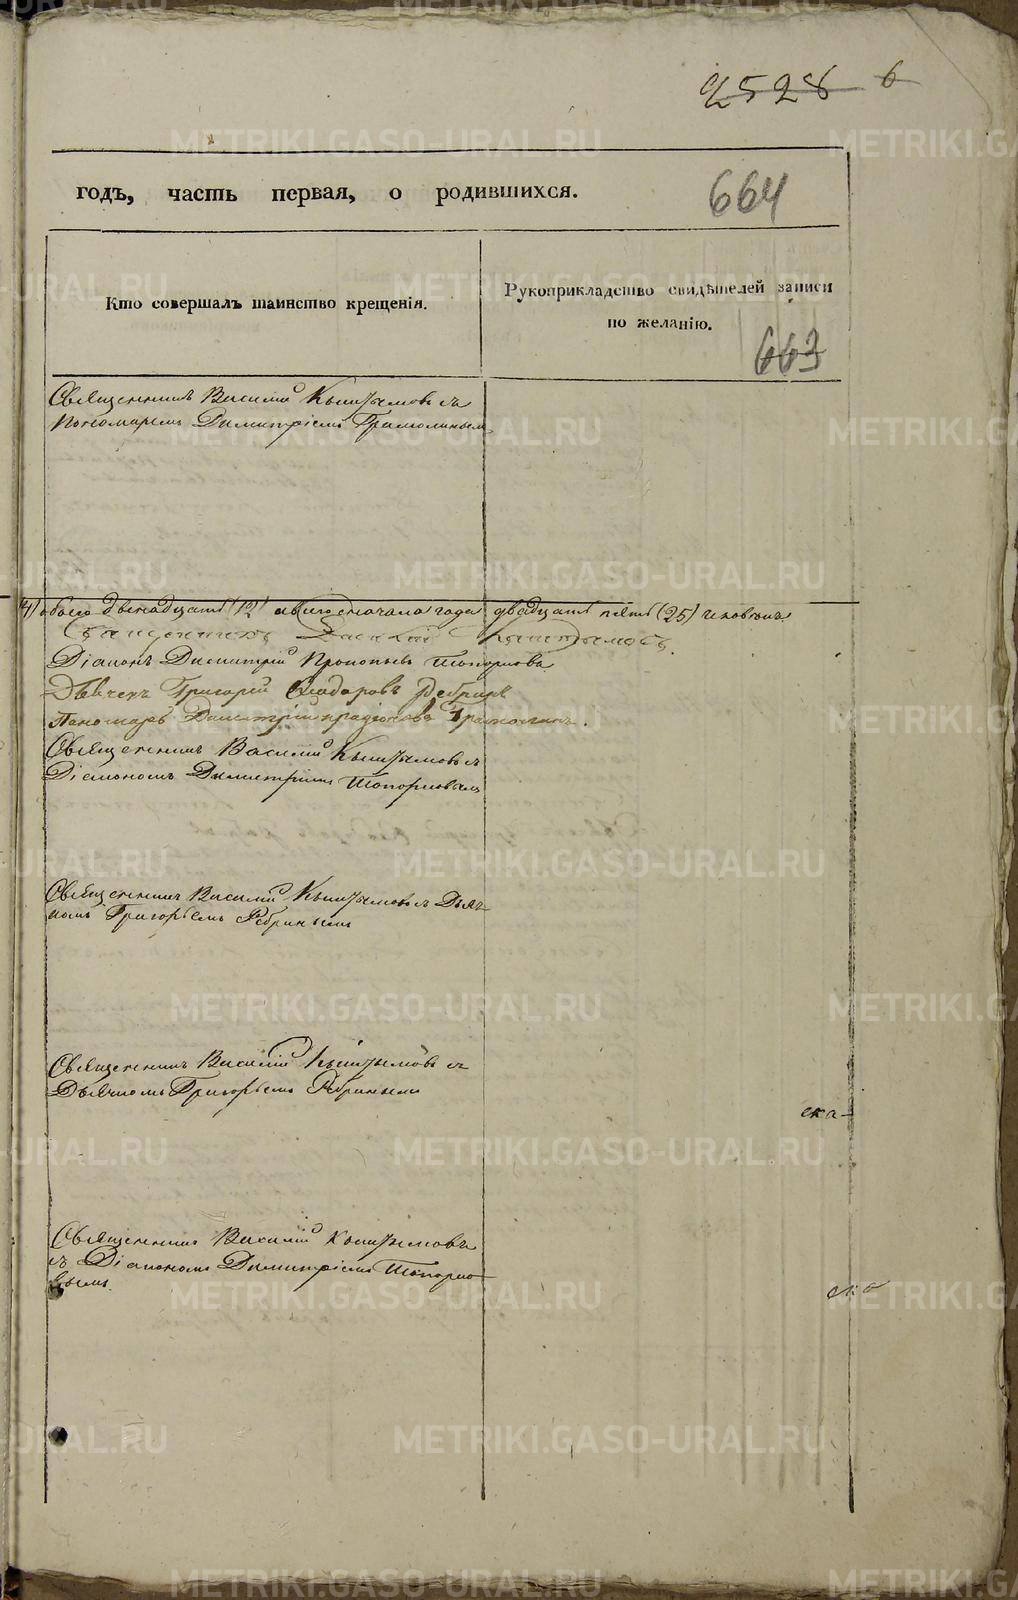 2528 6
годъ, часть первая, о родившихся.
664
Кто совершалъ таинство крещенія.
Рукоприкладство свидѣтелей записи
по желанію.
663
Священникъ Василій Кыштымовъ съ
Пономаремъ Димитріемъ
обоего двенадцать (12) а всего сначала года двадцать пять (25) человѣкъ
Священникъ Василій Кыштымовъ.
Діаконъ Димитрій Прокопьевъ Топорковъ
Дьячекъ Григорій Феодоровъ Рѣбринъ
Пономарь Димитрій
Священникъ Василій Кыштымовъ съ
Діакономъ Димитріемъ Топорковымъ
Священникъ Василій Кыштымовъ съ Дьяч-
комъ Григорьемъ Рѣбринымъ
Священникъ Василій Кыштымовъ съ
Дьячкомъ Григорьемъ Рѣбринымъ
ска-
Священникъ Василій Кыштымовъ
съ Діакономъ Димитріемъ Топорко-
вымъ.
METRIKI.GASO-URAL.RU